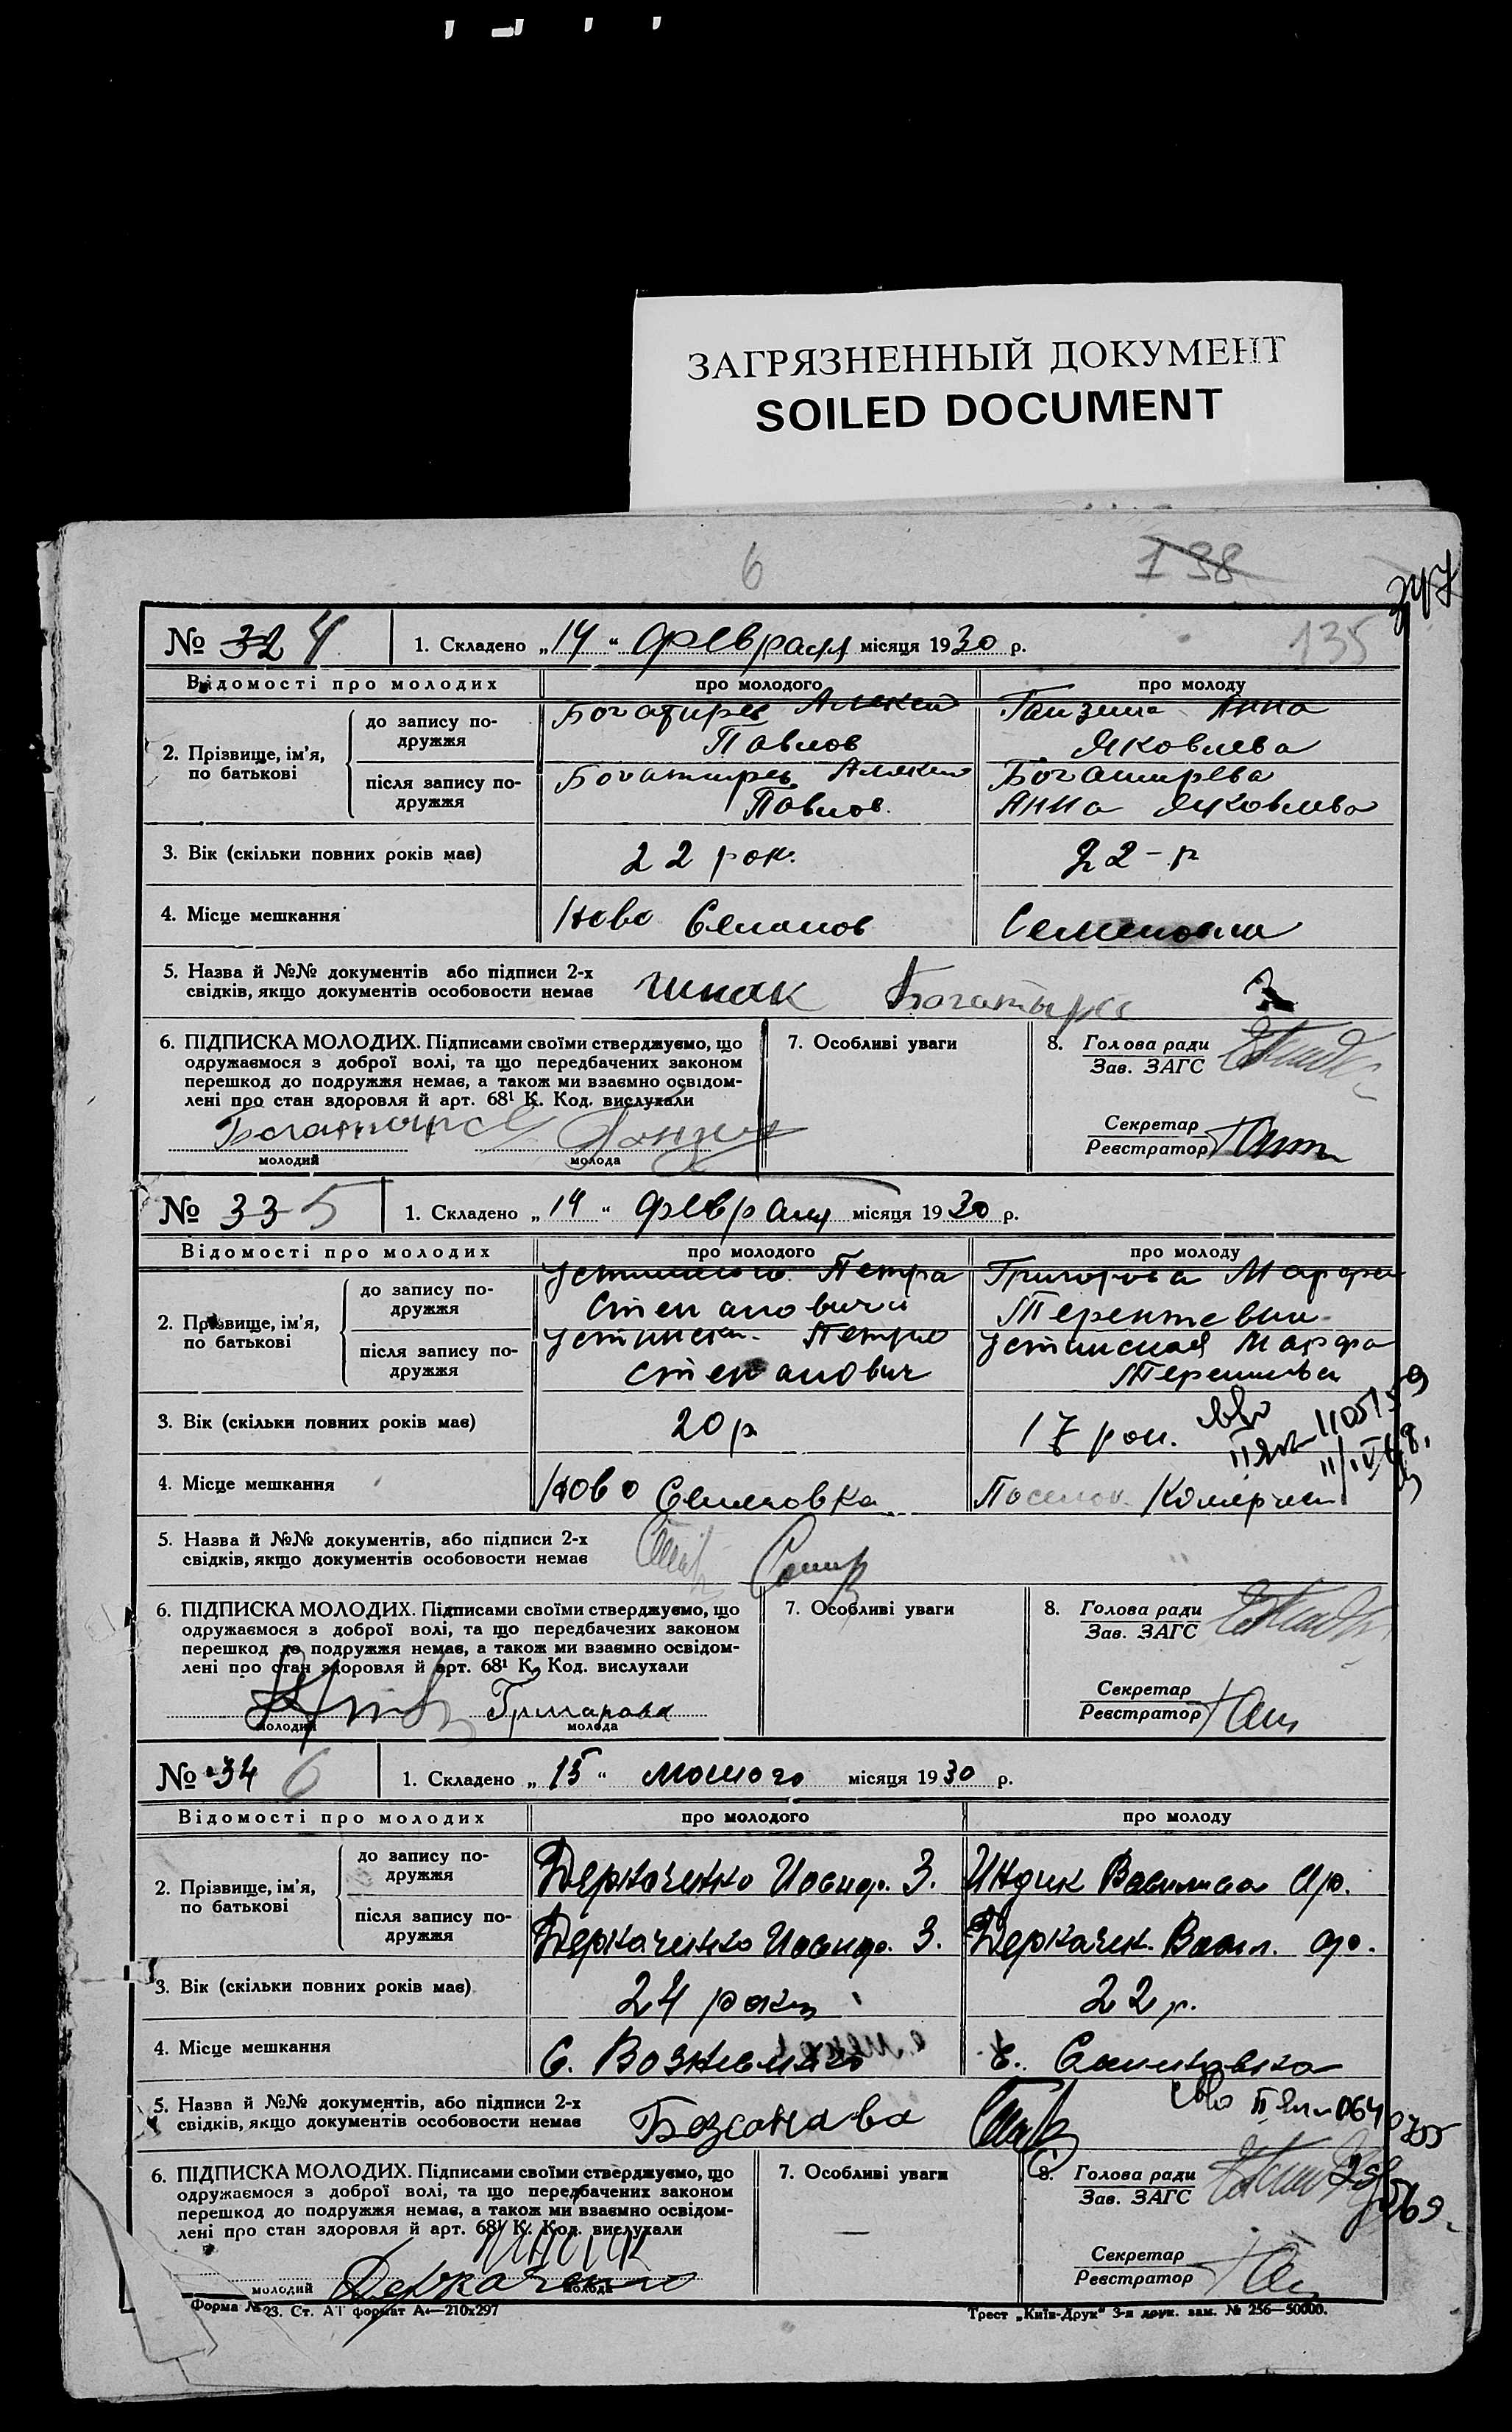 ЗАГРЯЗНЕННЫЙ ДОКУМЕНТ
SOILED DOCUMENT
6
138
347
135
№ 32 4
1. Складено „14“ февраля місяця 1930 р.
Відомості про молодих
про молодого
про молоду
2. Прізвище, ім'я, по батькові
до запису подружжя
Богатирев Алексей
Павлов
Ганзина Анна
Яковлева
після запису подружжя
Богатирев Алексей
Павлов.
Богатирева
Анна Яковлева
3. Вік (скільки повних років має)
22 рок.
22-р
4. Місце мешкання
Ново Семенов
Семеновка
5. Назва й №№ документів або підписи 2-х
свідків, якщо документів особовости немає
Богатырев
6. ПІДПИСКА МОЛОДИХ. Підписами своїми стверджуємо, що
одружаємося з доброї волі, та що передбачених законом
перешкод до подружжя немає, а також ми взаємно освідом-
лені про стан здоровля й арт. 68¹ К. Код. вислухали
молодий
молода
7. Особливі уваги
8. Голова ради
Зав. ЗАГС
Секретар
Реєстратор
№ 33 5
1. Складено „14“ февраля місяця 1930 р.
Відомості про молодих
про молодого
про молоду
2. Прізвище, ім'я, по батькові
до запису подружжя
Петра
Степановича
Григорова Марфа
Терентевна
після запису подружжя
Петро
Степанович
Устинская Марфа
3. Вік (скільки повних років має)
20 р
17 рок.
1105159
4. Місце мешкання
Ново Семеновка
Поселок
5. Назва й №№ документів, або підписи 2-х
свідків, якщо документів особовости немає
6. ПІДПИСКА МОЛОДИХ. Підписами своїми стверджуємо, що
одружаємося з доброї волі, та що передбачених законом
перешкод до подружжя немає, а також ми взаємно освідом-
лені про стан здоровля й арт. 68¹ К. Код. вислухали
молодий
молода
7. Особливі уваги
8. Голова ради
Зав. ЗАГС
Секретар
Реєстратор
№ 34 6
1. Складено „15“ лютого місяця 1930 р.
Відомості про молодих
про молодого
про молоду
2. Прізвище, ім'я, по батькові
до запису подружжя
Деркаченко Иосиф. З.
Индик Василиса Ф.
після запису подружжя
Деркаченко Иосиф. З.
Деркачен. Васил. Ф.
3. Вік (скільки повних років має)
24 роки
22 р.
4. Місце мешкання
С.
С.
5. Назва й №№ документів, або підписи 2-х
свідків, якщо документів особовости немає
6. ПІДПИСКА МОЛОДИХ. Підписами своїми стверджуємо, що
одружаємося з доброї волі, та що передбачених законом
перешкод до подружжя немає, а також ми взаємно освідом-
лені про стан здоровля й арт. 68¹ К. Код. вислухали
Индик
Деркаченко
молодий
молода
7. Особливі уваги
—
8. Голова ради
Зав. ЗАГС
Секретар
Реєстратор
Форма №23. Ст. А1 формат А4—210х297
Трест „Київ-Друк“ 3-я друк. зам. № 256—50000.